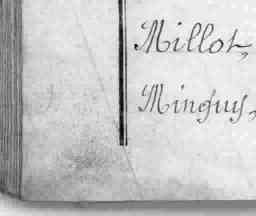 Millot,
Minguy,